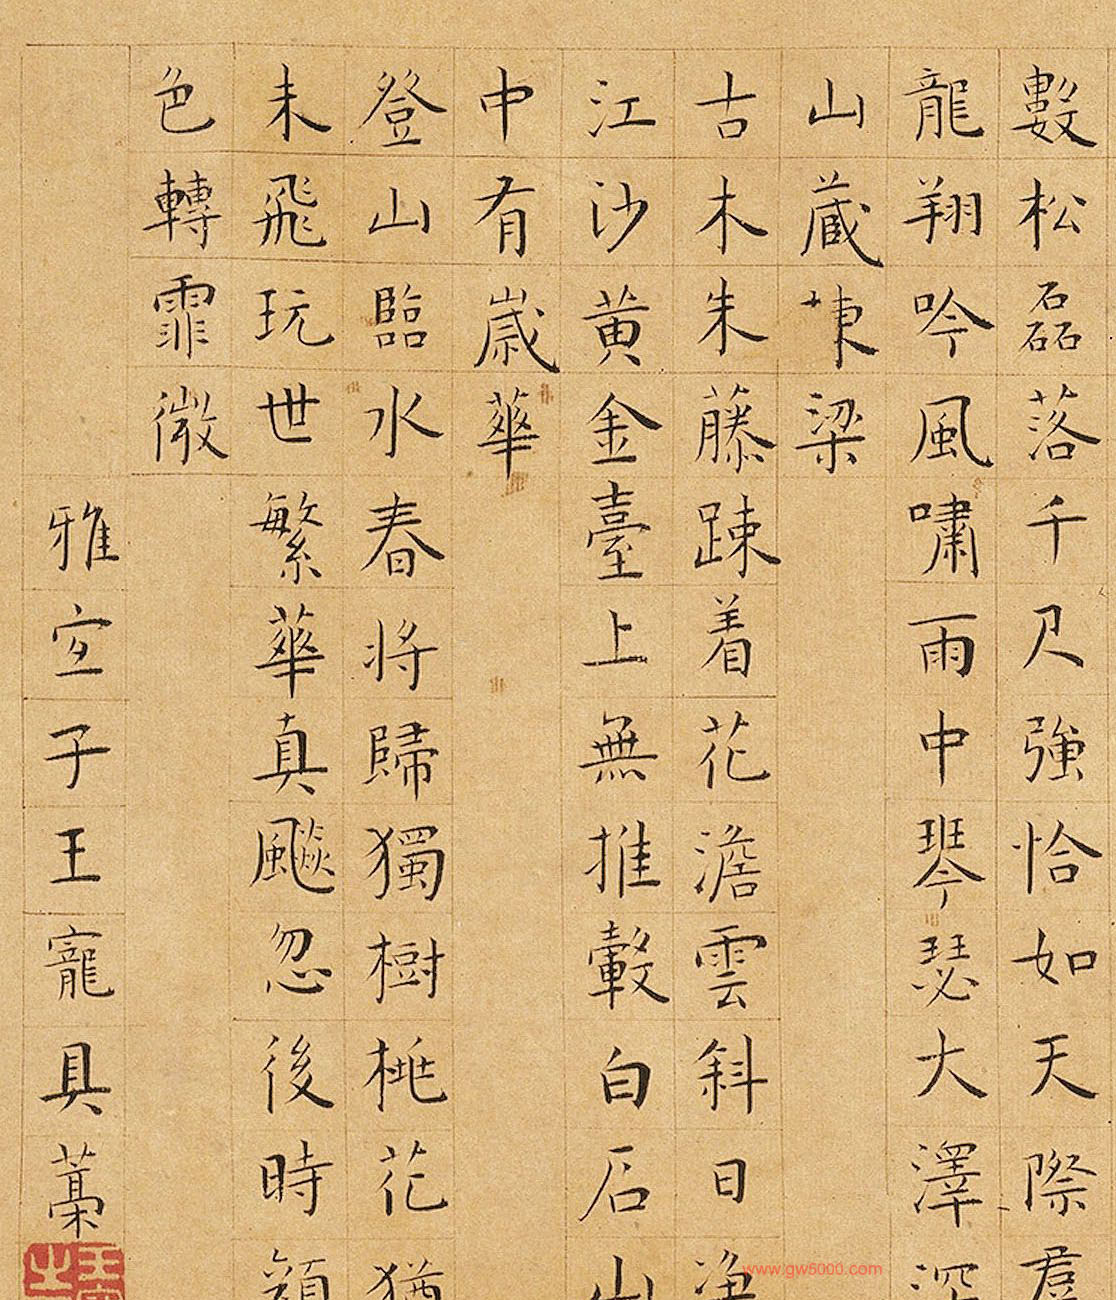 數松磊落千尺強恰如天際羣
龍翔吟風嘯雨中琴瑟大澤深
山蔵棟梁
古木朱藤踈着花澹雲斜日淨
江沙黄金臺上無推轂白石山
中有歳華
登山臨水春将歸獨樹桃花猶
未飛玩世繁華真飈忽後時顔
色轉霏微
雅宜子王寵具藁
www.gw5000.com